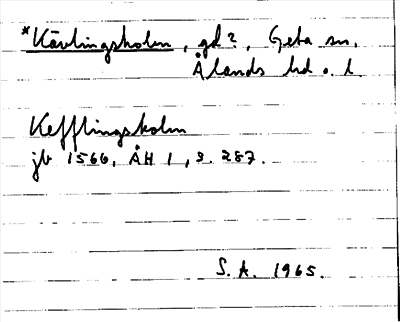 *Kävlingsholm, gd?, Geta sn.
Ålands hd o. l.
Kefflingsholm
jb 1566, ÅH 1, s. 287.
S. A. 1965.